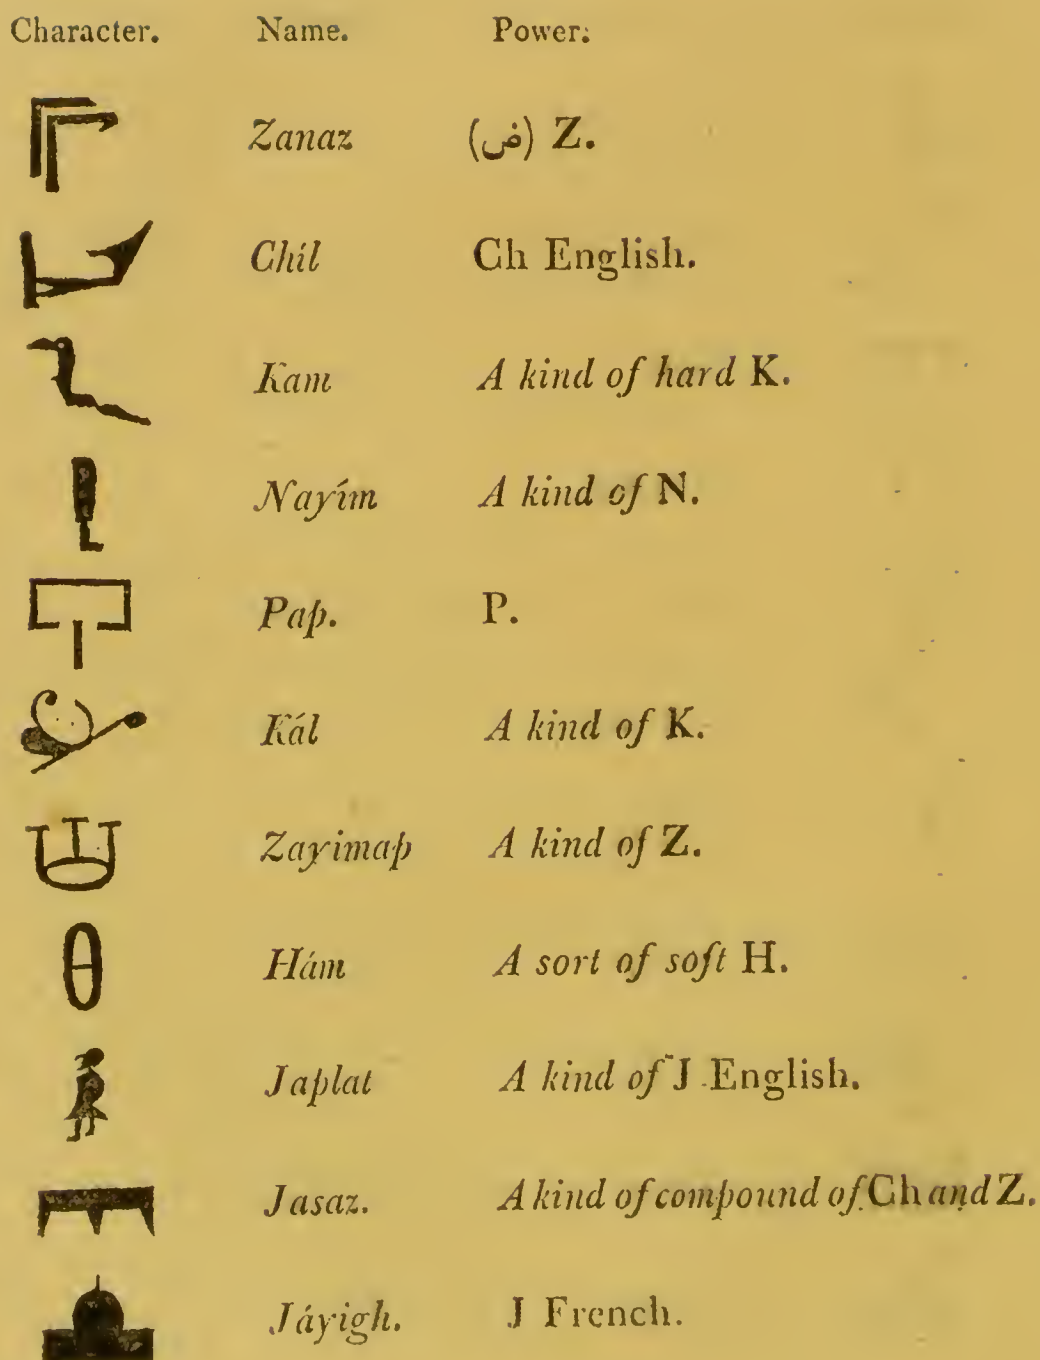 Character. Name. Power:
Zanaz (ض) Z.
Chíl Ch English.
Kam A kind of hard K.
Nayím A kind of N.
Pap. P.
Kál A kind of K.
Zayimap A kind of Z.
Hám A sort of soft H.
Japlat A kind of J English.
Jasaz. A kind of compound of Ch and Z.
Jáyigh. J French.